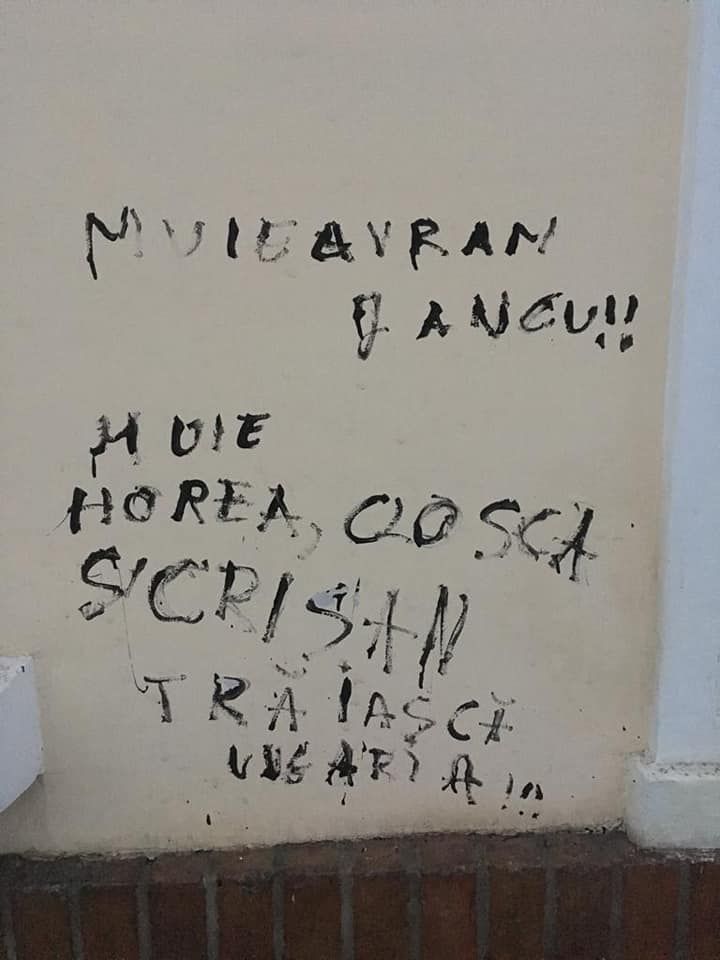 MUIE AVRAN
JANCU!!
MUIE
HOREA, CLOSCA
SI CRISAN
TRĂIASCĂ
UNGARIA!!!